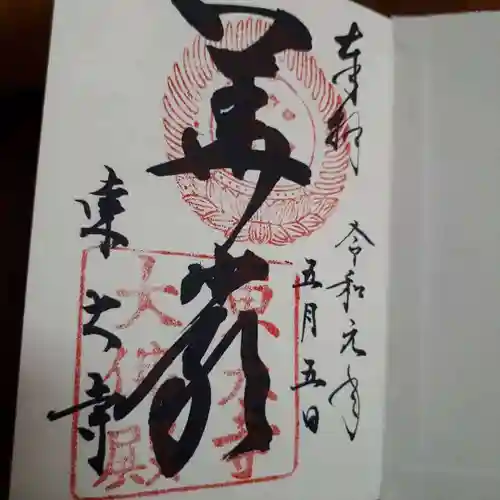 奉拝
令和元年
五月五日
華厳
東大寺
東大寺
大佛殿